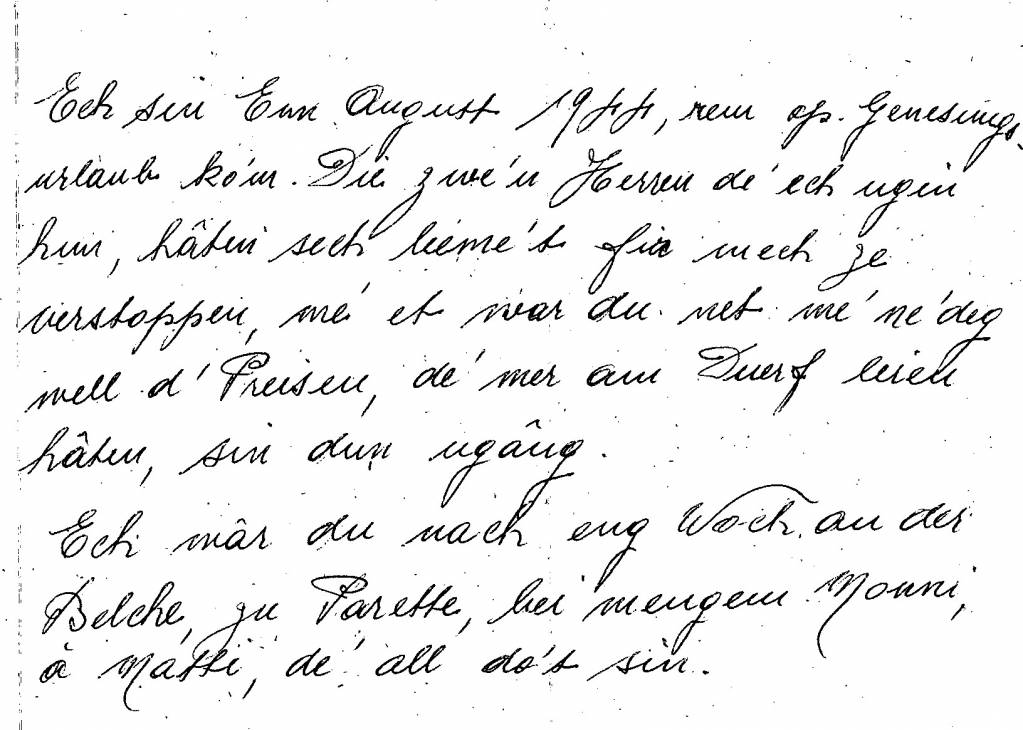 Ech sin Enn August 1944, rem op. Genesungs-
urlaub ko'm. Die zwe'n Herren de' ech ugin
hun, hâten sech beme't fir mech ze
verstoppen, mé et war du net me' ne'deg
well d' Preisen, de' mer am Duerf leien
hâten, sin dun ugâng.
Ech wâr du nach eng Woch an der
Belche, zu Parette, bei mengem Monni,
a Matti, de' all do't sin.